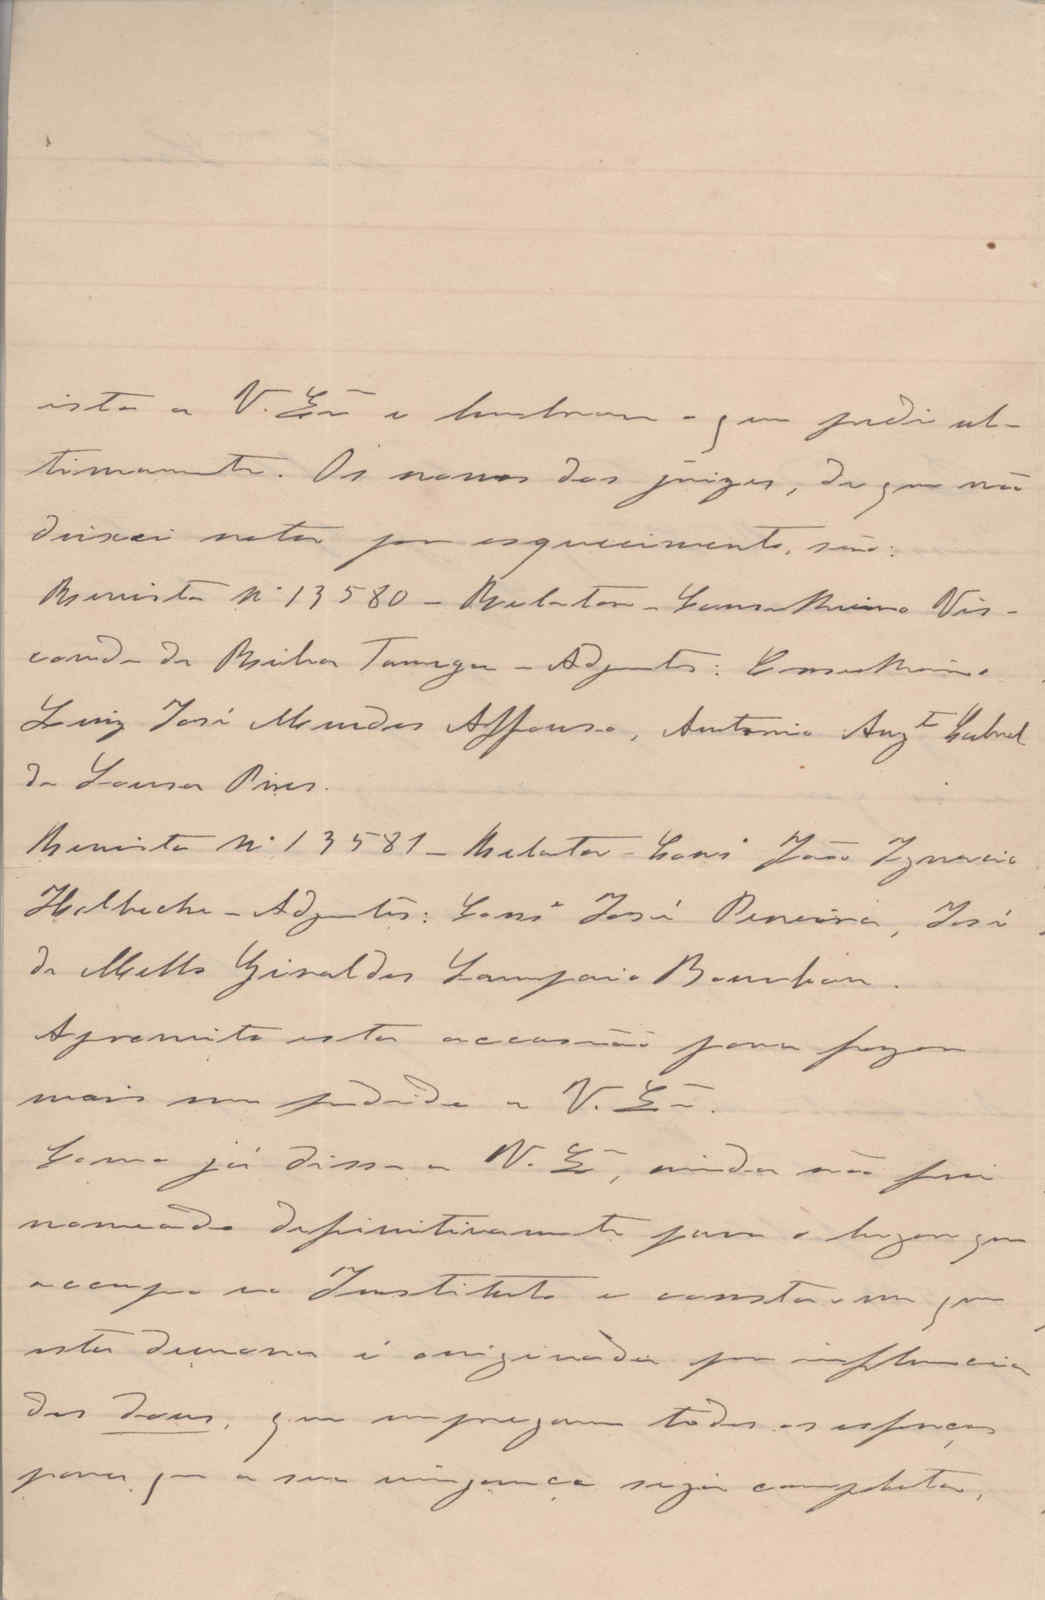 isto a V. Exª e lembrar o que pedi ul-
timamente. Os nomes dos juizes, de que não
deixei nota por esquecimento, são:
Revista Nº 13580 - Relator - Conselheiro Vis-
conde de Riba Tamega - Adjuntos: Conselheiro
Luiz José Mendes Affonso, Antonio Augto Cabral
de Sousa Pires.
Revista Nº 13581 - Relator - Consº João Ignacio
Holbeche - Adjuntos: Consº José Pereira, José
de Mello Giraldes Sampaio Bourbon.
Aproveito esta occasião para fazer
mais um pedido a V. Exª.
Como já disse a V. Exª, ainda não fui
nomeado definitivamente para o lugar que
occupo no Instituto e consta-me que
esta demora é originada por influencia
dos dous, que empregam todos os esforços
para que a sua vingança seja completa,